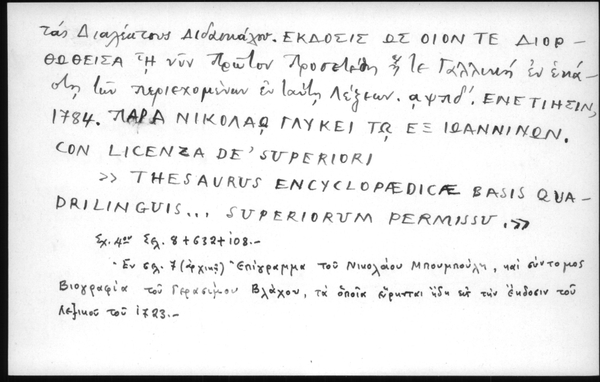 τάς Διαλέκτους Διδασκάλου. ΕΚΔΟΣΙΣ ΩΣ ΟΙΟΝ ΤΕ ΔΙΟΡ-
ΘΩΘΕΙΣΑ ᾟ νῦν Πρῶτον Προσετέθη ἥ τε Γαλλική ἐν ἑκά-
στῃ τῶν περιεχομένων ἐν ταύτῃ Λέξεων. αψπδ'. ΕΝΕΤΙΗΣΙΝ,
1784. ΠΑΡΑ ΝΙΚΟΛΑῼ ΓΛΥΚΕΙ Τῼ ΕΞ ΙΩΑΝΝΙΝΩΝ.
CON LICENZA DE' SUPERIORI
» THESAURUS ENCYCLOPÆDICÆ BASIS QUA-
DRILINGUIS... SUPERIORUM PERMISSU.»
Σχ. 4ον Σελ. 8+632+108.-
Ἐν σελ. 7 (ἀρχικῇ) Ἐπίγραμμα τοῦ Νικολάου Μπουμπούλη, καί σύντομος
Βιογραφία τοῦ Γερασίμου Βλάχου, τά ὁποῖα εὕρηνται ἤδη εἰς τήν ἔκδοσιν τοῦ
Λεξικοῦ τοῦ 1723.-